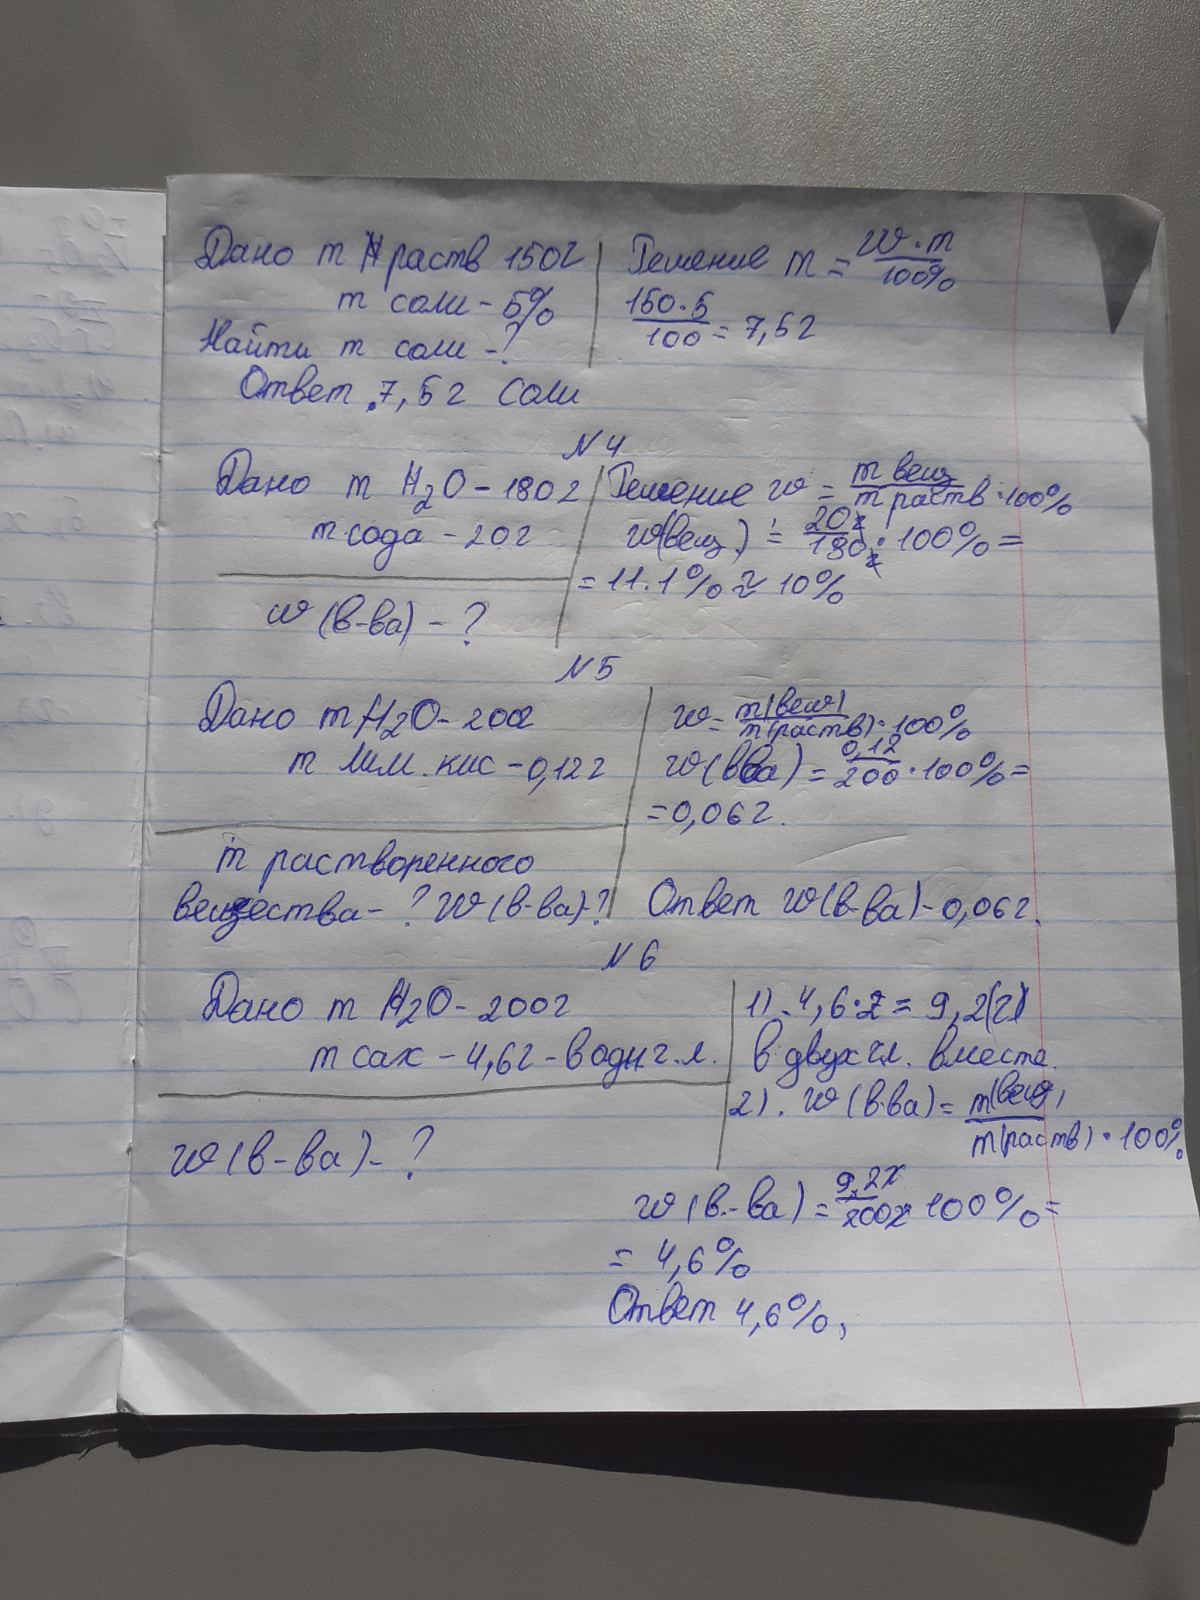 Дано m раств 150г
m соли - 5%
Найти m соли - ?
Решение m = w·m/100%
150·5/100 = 7,5г
Ответ 7,5г соли
N4
Дано m H₂O - 180г
m сода - 20г
w (в-ва) - ?
Решение w = m вещ/m раств · 100%
w(вещ.) = 20г/180г · 100% =
= 11.1% ≈ 10%
N5
Дано m H₂O - 200г
m лим. кис - 0,12г
m растворенного
вещества - ? w (в-ва) - ?
w = m(вещ)/m(раств) · 100%
w (вва) = 0,12/200 · 100% =
= 0,06г.
Ответ w (в-ва) - 0,06г.
N6
Дано m H₂O - 200г
m сах - 4,6г - в одн г.л.
w (в-ва) - ?
1). 4,6·2 = 9,2(г)
в двух гл. вместе.
2). w (в-ва) = m(вещ)/m(раств) · 100%
w (в.-ва) = 9,2г/200г 100% =
= 4,6%
Ответ 4,6%,